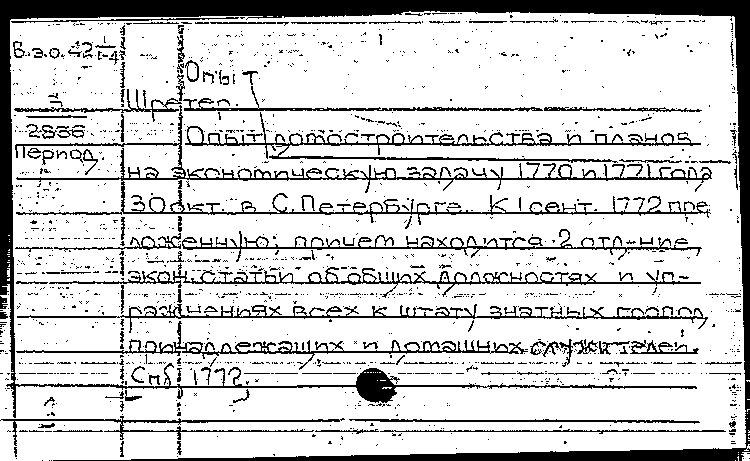 В.э.о. 42 1/1-4
Опыт
3
Шретер.
2836
Опыт домостроительства и планов
Период.
на экономическую задачу 1770 и 1771 года
30 окт. в С. Петербурге. К 1 сент. 1772 пре
ложенную; причем находится 2 отд-ние,
экон. статьи об общих должностях и уп-
ражнениях всех к штату знатных господ
принадлежащих и домашних служителей.
[Спб] 1772.